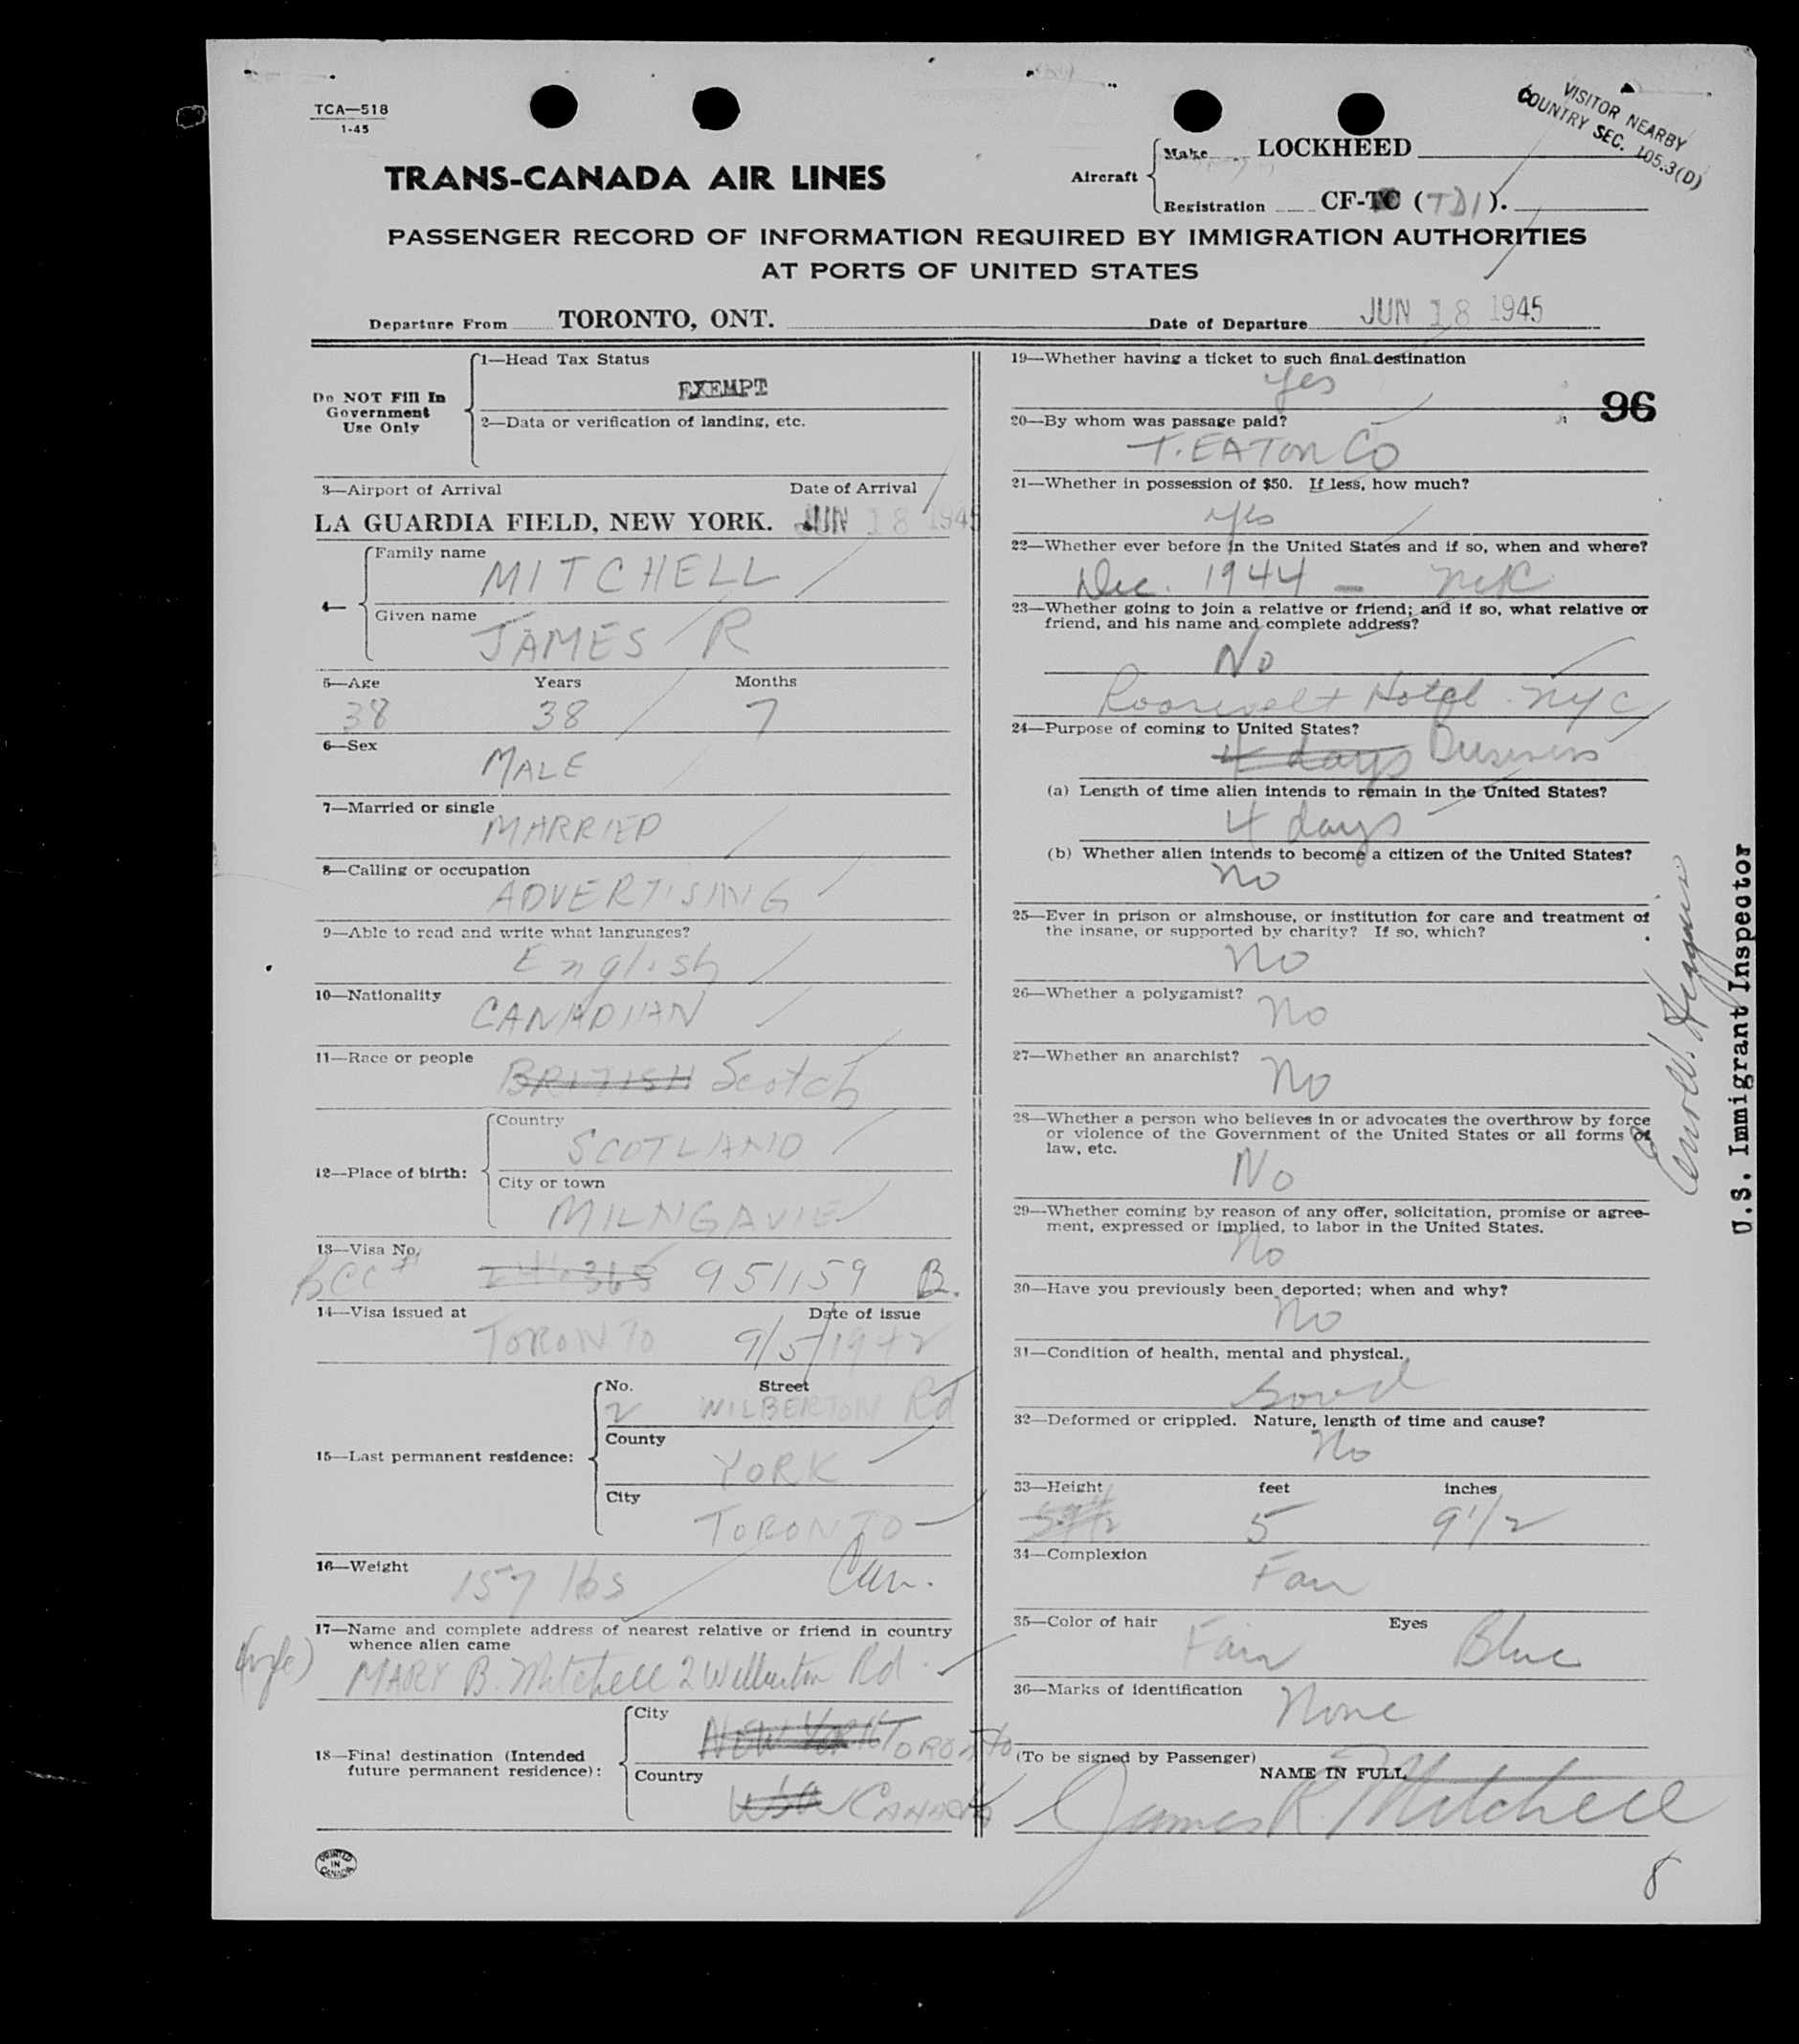 TCA—518
1-45
VISITOR NEARBY
COUNTRY SEC. 105.3(D)
TRANS-CANADA AIR LINES
Aircraft
Make LOCKHEED
Registration CF-TC (TDI).
PASSENGER RECORD OF INFORMATION REQUIRED BY IMMIGRATION AUTHORITIES
AT PORTS OF UNITED STATES
Departure From TORONTO, ONT. Date of Departure JUN 18 1945
Do NOT Fill In
Government
Use Only
1—Head Tax Status
EXEMPT
2—Data or verification of landing, etc.
3—Airport of Arrival Date of Arrival
LA GUARDIA FIELD, NEW YORK. JUN 18 1945
4—
Family name
MITCHELL
Given name
JAMES R
5—Age Years Months
38 38 7
6—Sex
MALE
7—Married or single
MARRIED
8—Calling or occupation
ADVERTISING
9—Able to read and write what languages?
English
10—Nationality
CANADIAN
11—Race or people
BRITISH Scotch
12—Place of birth:
Country
SCOTLAND
City or town
MILNGAVIE
13—Visa No.
BCC # 951159 B.
14—Visa issued at Date of issue
TORONTO 9/5/1942
15—Last permanent residence:
No. Street
2 WILBERTON Rd
County
YORK
City
TORONTO
Can.
16—Weight
157 lbs
17—Name and complete address of nearest relative or friend in country
whence alien came
(wife) MARY B. Mitchell 2 Wilberton Rd.
18—Final destination (Intended
future permanent residence):
City
NEW YORK TORONTO
Country
USA CANADA
PRINTED
IN
CANADA
19—Whether having a ticket to such final destination
yes
96
20—By whom was passage paid?
T. EATON CO
21—Whether in possession of $50. If less, how much?
yes
22—Whether ever before in the United States and if so, when and where?
Dec. 1944 — NYC
23—Whether going to join a relative or friend; and if so, what relative or
friend, and his name and complete address?
No
Roosevelt Hotel - NYC
24—Purpose of coming to United States?
4 days Business
(a) Length of time alien intends to remain in the United States?
4 days
(b) Whether alien intends to become a citizen of the United States?
No
25—Ever in prison or almshouse, or institution for care and treatment of
the insane, or supported by charity? If so, which?
No
26—Whether a polygamist?
No
27—Whether an anarchist?
No
28—Whether a person who believes in or advocates the overthrow by force
or violence of the Government of the United States or all forms of
law, etc.
No
29—Whether coming by reason of any offer, solicitation, promise or agree-
ment, expressed or implied, to labor in the United States.
No
30—Have you previously been deported; when and why?
No
31—Condition of health, mental and physical.
Good
32—Deformed or crippled. Nature, length of time and cause?
No
33—Height feet inches
5 9 1/2
34—Complexion
Fair
35—Color of hair Eyes
Fair Blue
36—Marks of identification
None
(To be signed by Passenger)
NAME IN FULL
James R. Mitchell
8
U.S. Immigrant Inspector